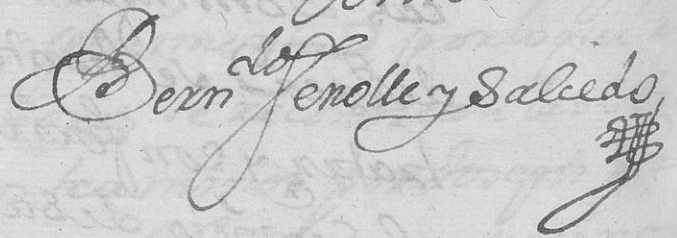 Bern.do Jenolle y Salcedo